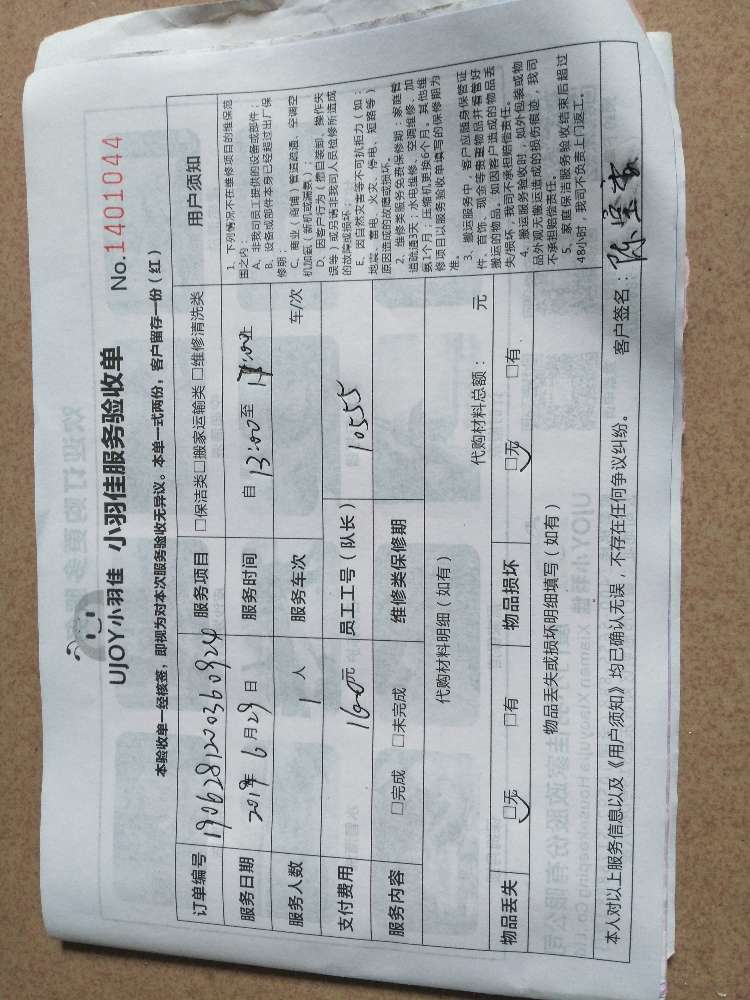 UJOY小羽佳 小羽佳服务验收单 No.1401044
本验收单一经核签，即视为对本次服务验收无异议。本单一式两份，客户留存一份（红）
订单编号 190628120036092 服务项目 □保洁类□搬家运输类□维修清洗类 用户须知
服务日期 2019年6月29日 服务时间 自13:00至17:00止
服务人数 1人 服务车次 车/次
支付费用 160元 员工工号（队长） 10555
服务内容 □完成 □未完成 维修类保修期
代购材料明细（如有） 代购材料总额： 元
物品丢失 □无 □有 物品损坏 □无 □有
物品丢失或损坏明细填写（如有）
1、下列情况不在维修项目的维保范
围之内：
A、非我司员工提供的设备或部件；
B、设备或部件本身已经超过出厂保
修期；
C、商业（商铺）管道疏通、空调空
机加氨（新机或漏氨）；
D、因客户行为（擅自装卸、操作失
误等）或另请非我司人员检修所造成
的故障或损坏；
E、因自然灾害等不可抗拒力（如：
地震、雷电、火灾、停电、短路等）
原因造成的故障或损坏。
2、维修类服务免费保修期：家庭管
道疏通3天；水电维修、空调维修、加
氨1个月；压缩机更换6个月。其他维
修项目以服务验收单填写的保修期为
准。
3、搬运服务中，客户应随身保管证
件、首饰、现金等贵重物品并看管好
搬运的物品。如因客户造成的物品丢
失/损坏，我司不承担赔偿责任。
4、搬运服务验收时，如外包装或物
品外观无搬运造成的损伤痕迹，我司
不承担赔偿责任。
5、家庭保洁服务验收结束后超过
48小时，我司不负责上门返工。
本人对以上服务信息以及《用户须知》均已确认无误，不存在任何争议纠纷。 客户签名：